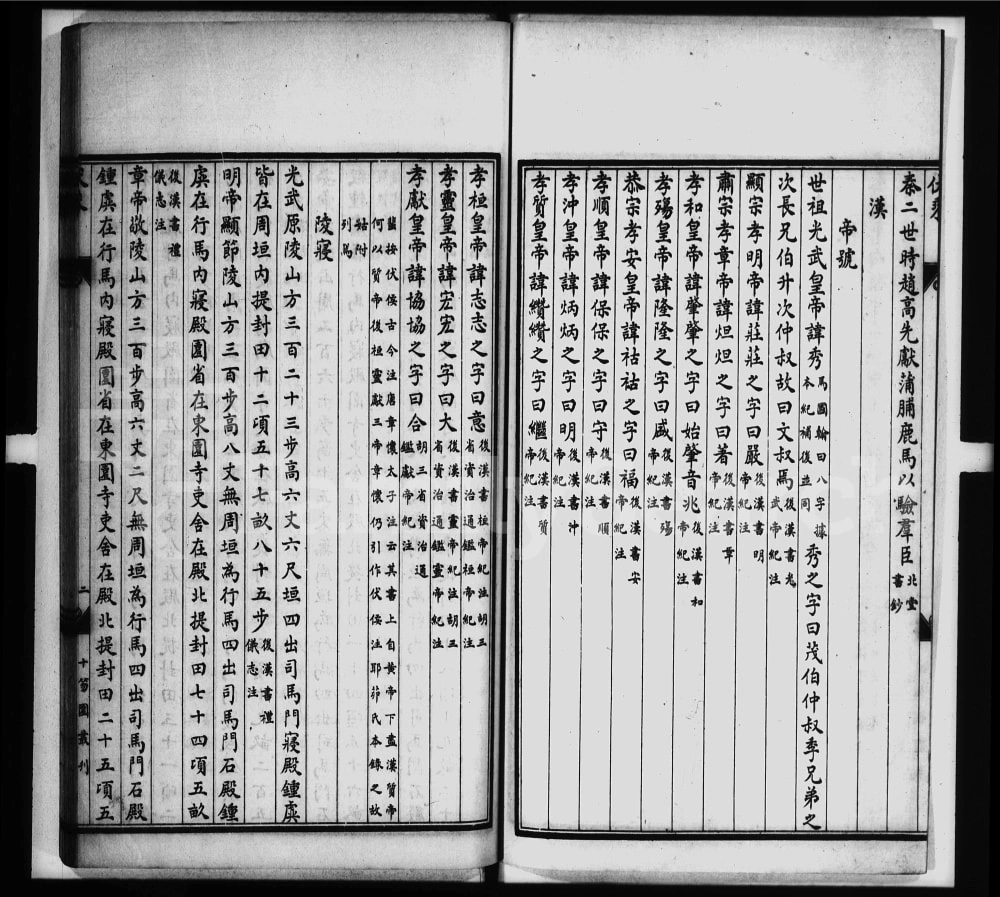 秦二世時趙高先獻蒲脯鹿馬以驗羣臣北堂書鈔
漢
帝號
世祖光武皇帝諱秀馬國翰曰八字據本紀補後並同秀之字曰茂伯仲叔季兄弟之
次長兄伯升次仲叔故曰文叔焉後漢書光武帝紀注
顯宗孝明帝諱莊莊之字曰嚴後漢書明帝紀注
肅宗孝章帝諱炟炟之字曰著後漢書章帝紀注
孝和皇帝諱肇肇之字曰始肇音兆後漢書和帝紀注
孝殤皇帝諱隆隆之字曰盛後漢書殤帝紀注
恭宗孝安皇帝諱祜祜之字曰福後漢書安帝紀注
孝順皇帝諱保保之字曰守後漢書順帝紀注
孝沖皇帝諱炳炳之字曰明後漢書沖帝紀注
孝質皇帝諱纘纘之字曰繼後漢書質帝紀注
孝桓皇帝諱志志之字曰意後漢書桓帝紀注胡三省資治通鑑桓帝紀注
孝靈皇帝諱宏宏之字曰大後漢書靈帝紀注胡三省資治通鑑靈帝紀注
孝獻皇帝諱協協之字曰合胡三省資治通鑑獻帝紀注
按伏侯古今注唐章懷太子注云其書上自黃帝下盡漢質帝
何以質帝後桓靈獻三帝章懷仍引作伏侯注耶茆氏本錄之故
姑附列焉
陵寢
光武原陵山方三百二十三步高六丈六尺垣四出司馬門寢殿鍾虡
皆在周垣內提封田十二頃五十七畝八十五步後漢書禮儀志注
明帝顯節陵山方三百步高八丈無周垣為行馬四出司馬門石殿鍾
虡在行馬內寢殿園省在東園寺吏舍在殿北提封田七十四頃五畝
後漢書禮儀志注
章帝敬陵山方三百步高六丈二尺無周垣為行馬四出司馬門石殿
鍾虡在行馬內寢殿園省在東園寺吏舍在殿北提封田二十五頃五
二
十笏園叢刊